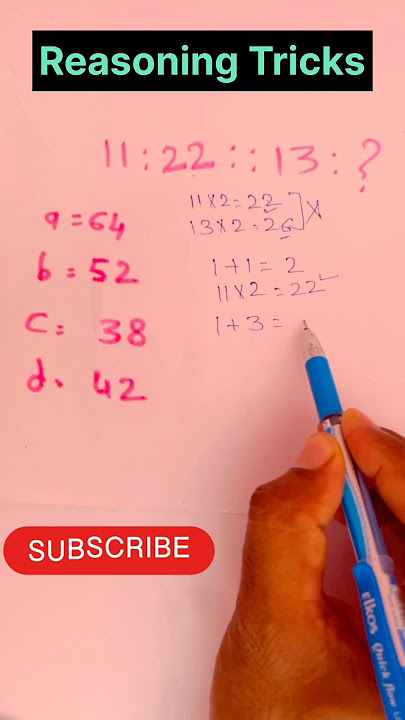 Reasoning Tricks
11 : 22 : : 13 : ?
11 x 2 = 22
13 x 2 = 26
a = 64
b = 52
c = 38
d. 42
1 + 1 = 2
11 x 2 = 22
1 + 3 =
SUBSCRIBE
Elkos
Quick flow